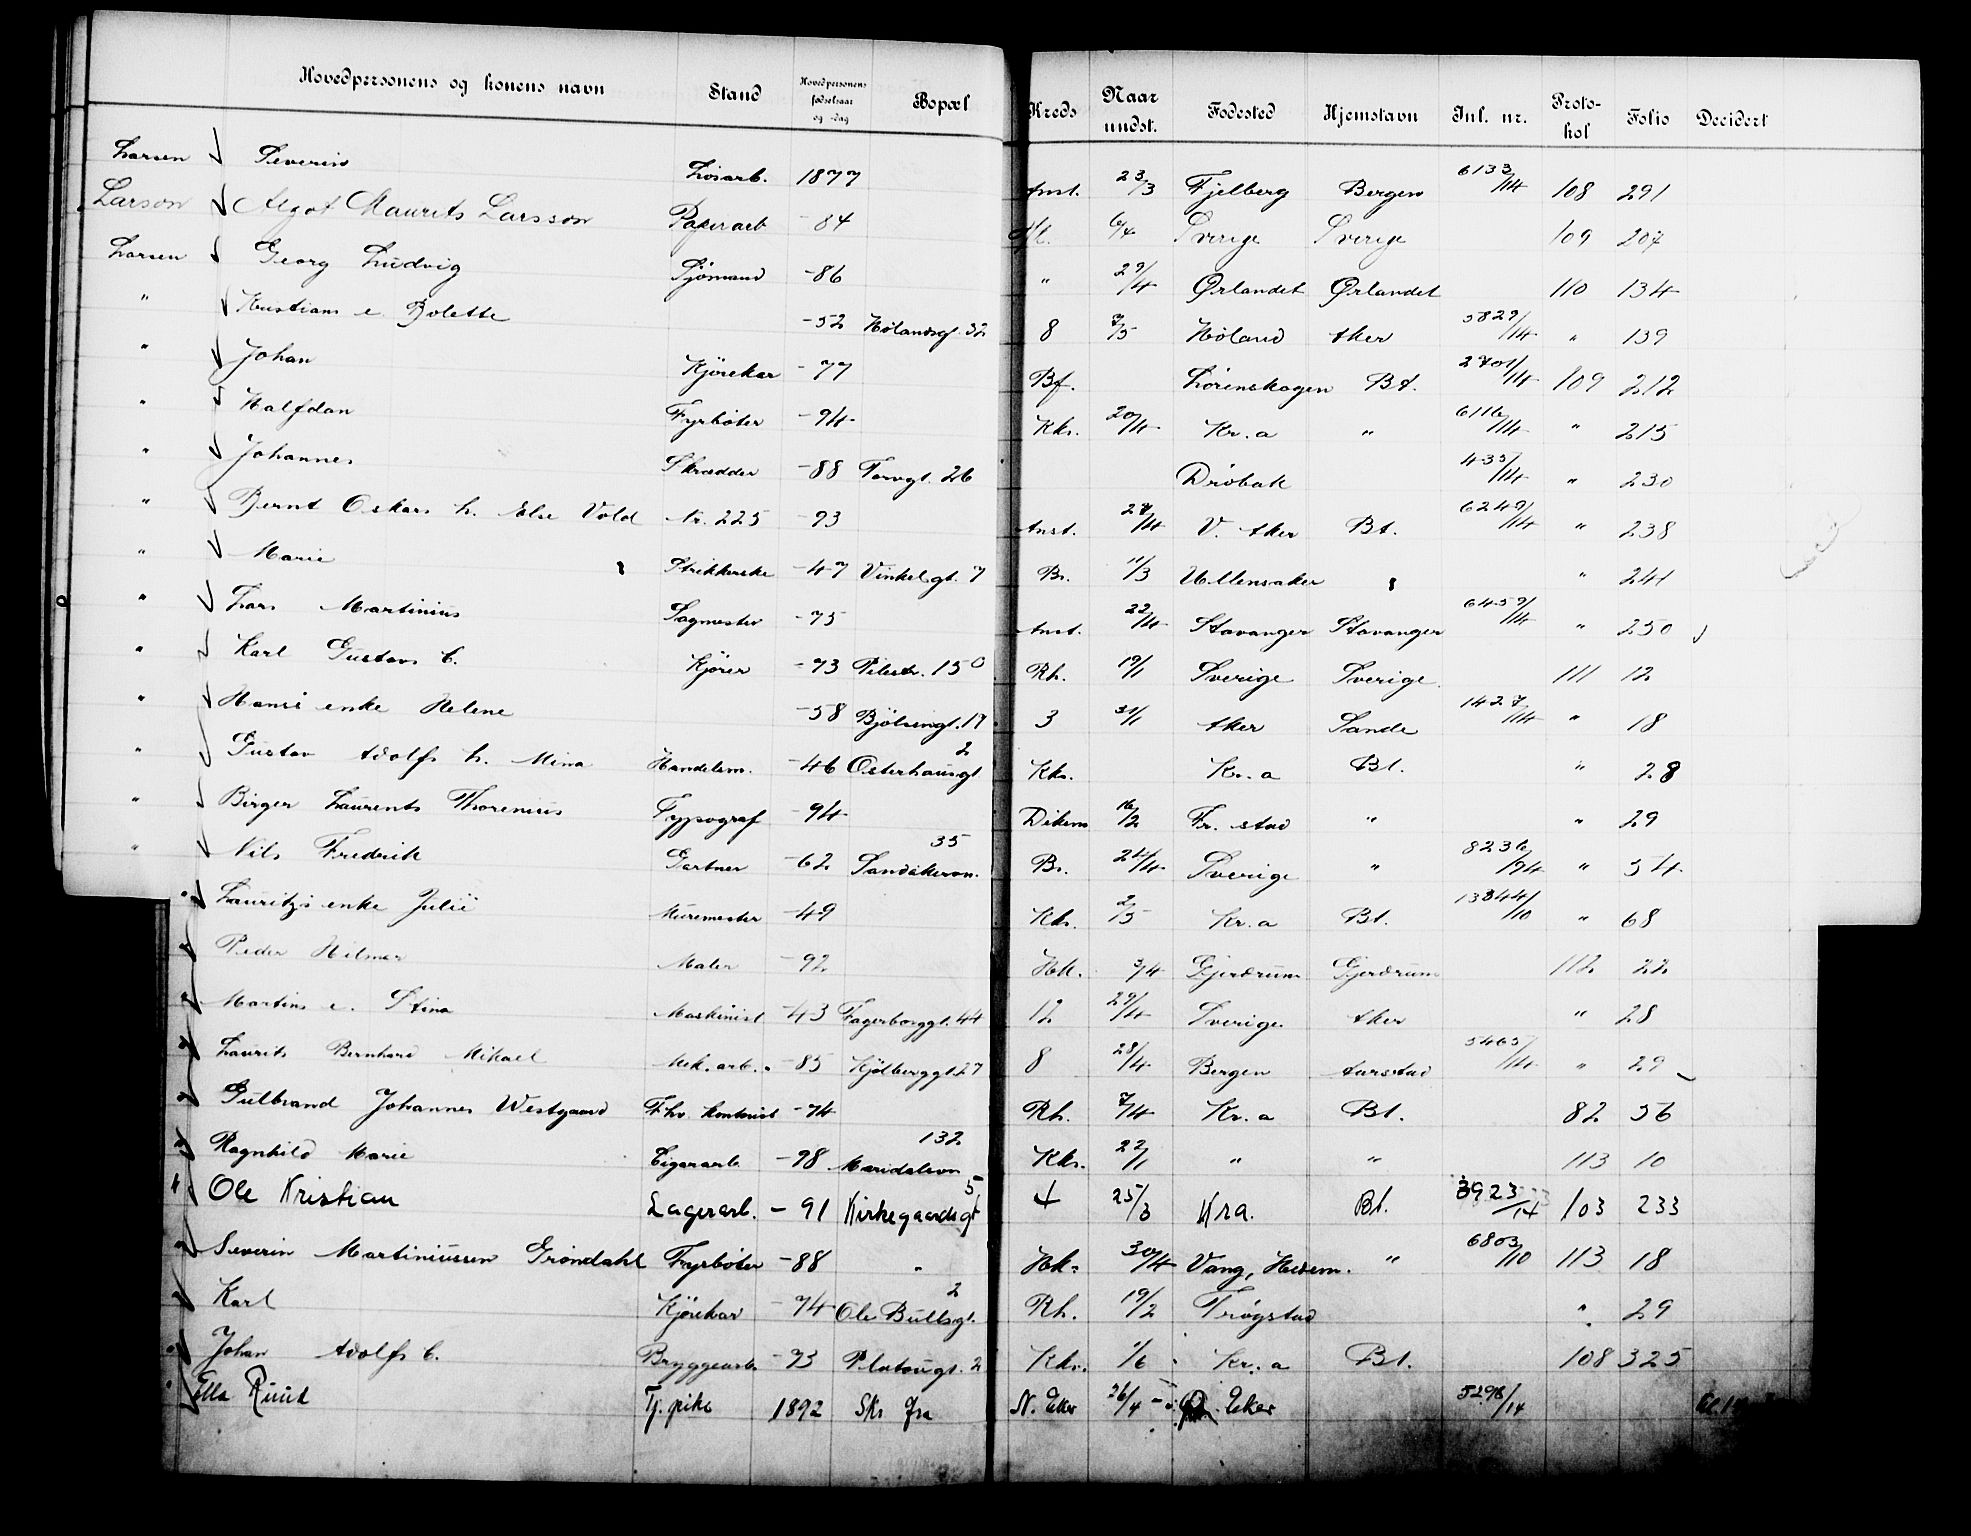 Hovedpersonens og konens navn Stand Hovedpersonens fødselsaar og -dag Bopæl Kreds Naar undst. Fødested Hjemstavn Jnl. nr. Proto-kol Folio Decidert
Larsen Severin Løsarb. 1877 Anst. 23/3 Fjelberg Bergen 6133/14 108 291
Larson Algot Maurits Larsson Papirarb - 84 6/4 Sverige Sverige 109 207
Larsen Georg Ludvig Sjömand - 86 " 29/4 Ørlandet Ørlandet 110 134
" Kristians e. Bolette - 52 Hølandsg. 32 8 7/5 Høland Aker 5829/14 " 139
" Johan Kjörekar - 77 Bf. Lørenskogen Bt. 2701/14 109 212
" Halfdan Fyrbøter - 94 Kk. 20/4 Kr.a " 6116/14 " 215
" Johannes Skrædder - 88 Torvgt. 26 Drøbak 435/14 " 230
" Bernt Oskar h. Else Vold Nr. 225 - 93 Anst. 27/4 V. Aker Bt. 6249/14 " 238
" Marie Strikkerske - 47 Vinkelgt. 7 Br. 11/3 Ullensaker " 241
" Lars Martinius Sagmester - 75 Anst. 22/4 Stavanger Stavanger 6459/14 " 250
" Karl Gustav C. Kjörer - 73 Pilestr. 15 Rh. 19/1 Sverige Sverige 111 12
" Hans' enke Helene - 58 Bjölsengt. 17 3 31/1 Aker Sande 1427/14 " 18
" Gustav Adolfs h. Mina Handelsm. - 46 Osterhausgt 2 Kk. Kr.a Bt. " 28
" Birger Laurents Thorenius Typograf - 94 Dikem 16/2 Fr. stad " " 29
" Nils Fredrik Gartner - 62 Sandakervn. 35 Br. 24/4 Sverige " 8236/94 " 54
" Lauritz's enke Julie Muremester - 49 Kk. 2/5 Kr.a Bt. 13344/10 " 68
" Peder Hilmar Maler - 92 Hk. 3/4 Gjerdrum Gjerdrum 112 22
" Martins e. Stina Maskinist - 43 Fagerborggt. 44 12 29/4 Sverige Aker " 28
" Laurits Bernhard Mikael Mek. arb. - 85 Kjölberggt. 27 8 28/4 Bergen Aarstad 5465/14 " 29
" Gulbrand Johannes Westgaard Fhv. kontorist - 74 Rh. 7/4 Kr.a Bt. 82 56
" Ragnhild Marie Cigararb. - 98 Maridalsvn 132 Kk. 22/1 " " 113 10
" Ole Kristian Lagerarb. - 91 Kirkegaardsgt 5 4 25/3 Kra. Bt. 3923/14 103 233
" Severin Martiniussen Grøndahl Fyrbøter - 88 " Hk. 30/4 Vang, Hedem. " 6803/10 113 18
" Karl Kjörekar - 74 Ole Bullsgt. 2 Rh. 19/2 Trøgstad " 29
" Johan Adolfs C. Bryggearb. - 93 Platougt. 2 Kk. 1/6 Kr.a Bt. 108 325
" Ella Ruud Tj. pike 1892 N. Eker 26/4 Eker 5298/14